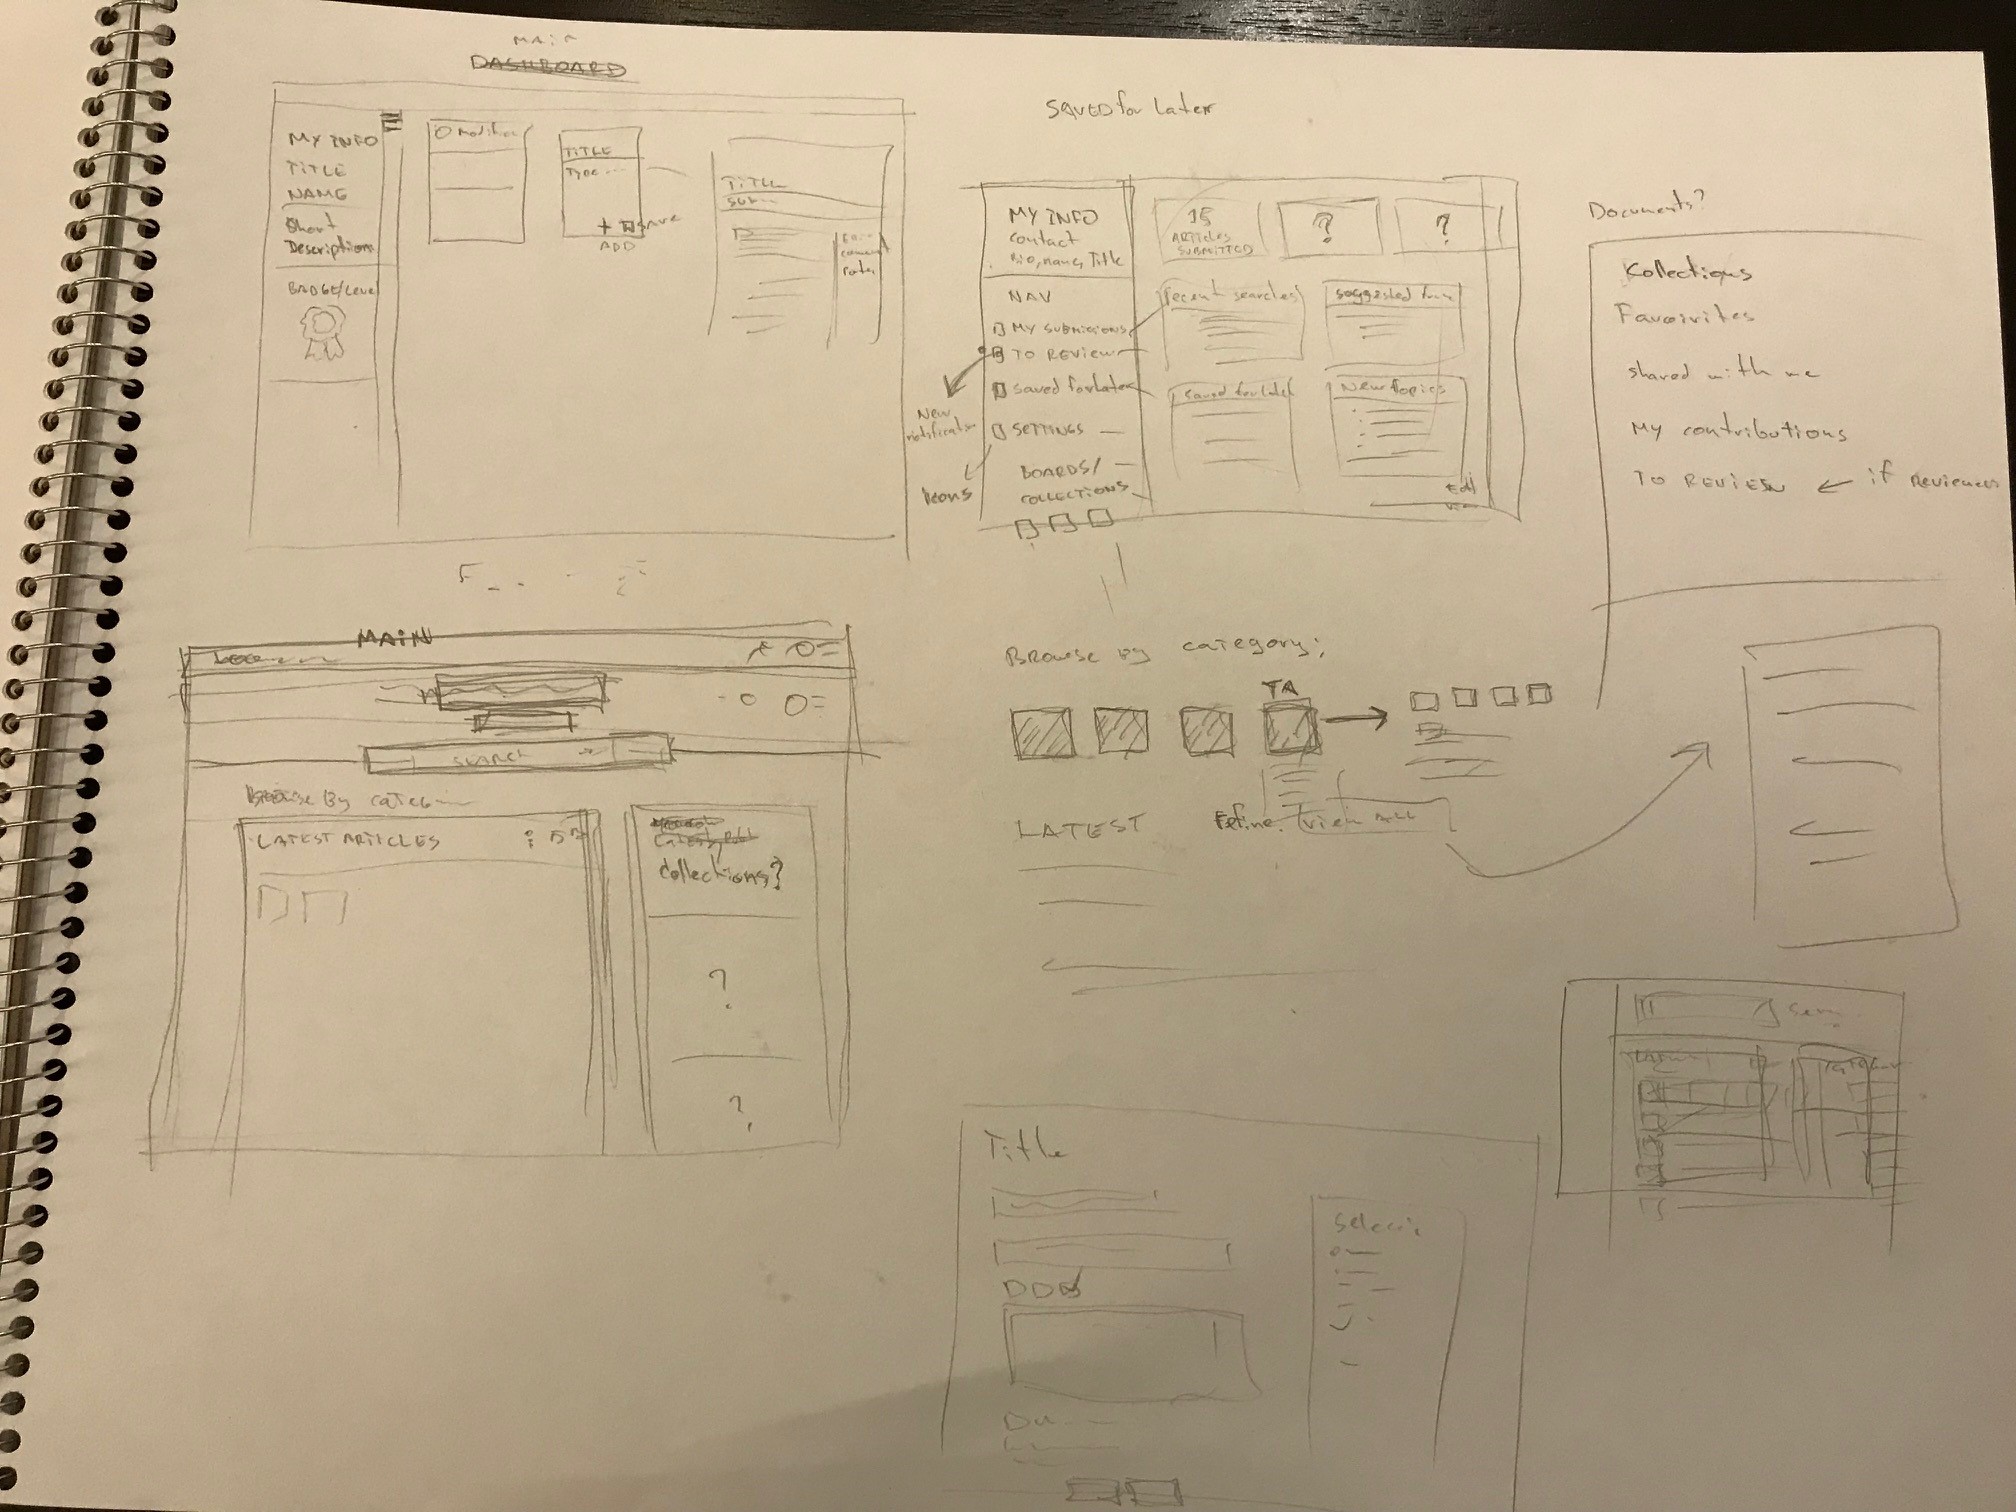 MAIN
DASHBOARD
MY INFO
TITLE
NAME
Short
Description
BADGE/Level
TITLE
Type
+ SAVE
ADD
TITLE
SAVED for Later
MY INFO
contact
Bio, name, Title
NAV
MY SUBMISIONS
TO REVIEW
saved for Later
SETTINGS
BOARDS/
COLLECTIONS
New
Icons
15
ARTICLES
SUBMITTED
?
?
recent searches
suggested
saved for Later
New Topics
Edit
Documents?
Kollections
Favoirites
shared with me
My contributions
TO REVIEW ← if Reviewer
MAIN
SEARCH
Browse By
LATEST ARTICLES
collections?
?
?
Browse by category;
TA
Refine
View ALL
LATEST
Title